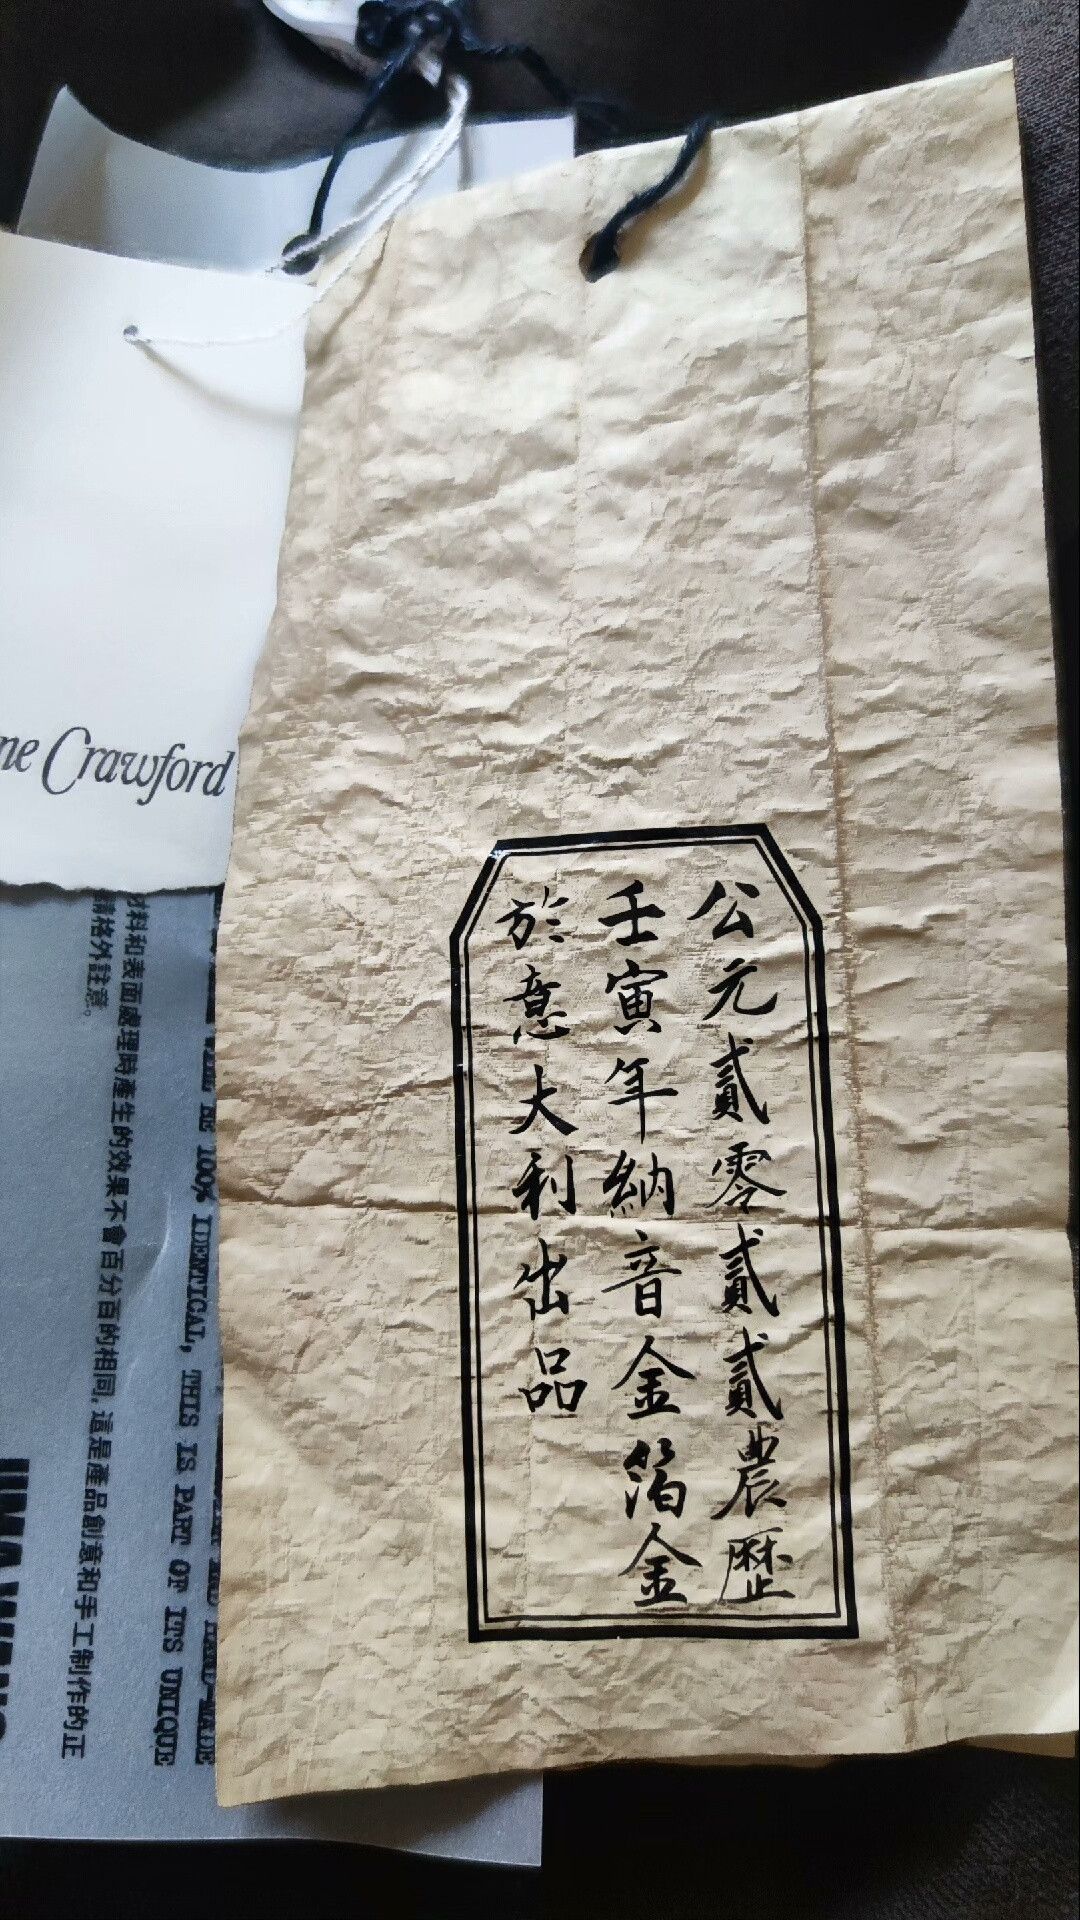 公元貳零貳貳農歷
壬寅年納音金箔金
於意大利出品
ne Crawford
材料和表面處理時產生的效果不會百分百的相同,這是產品創意和手工制作的正
請格外註意。
BE 100% IDENTICAL, THIS IS PART OF ITS UNIQUE
HAND-MADE
UMA WANG